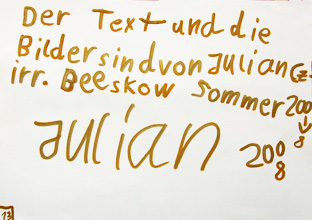 Der Text und die
Bilder sind von Julian Cz!
irr. Beeskow Sommer 200
8
Julian 200
8
13